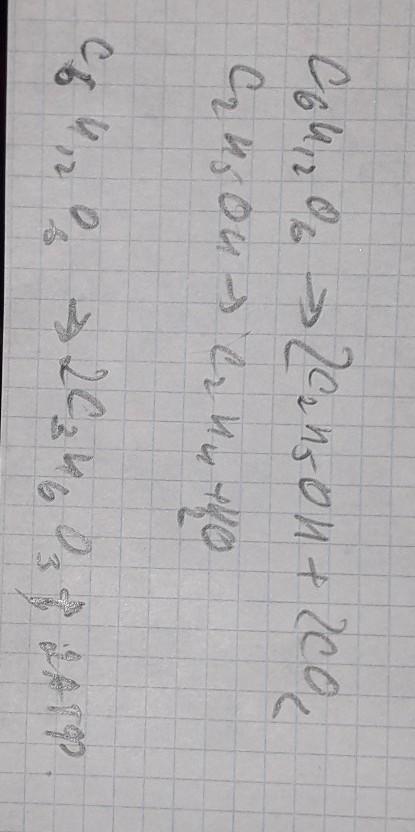 C₆H₁₂O₆ → 2C₂H₅OH + 2CO₂
C₂H₅OH → C₂H₄ + H₂O
C₆H₁₂O₆ → 2C₃H₆O₃ +